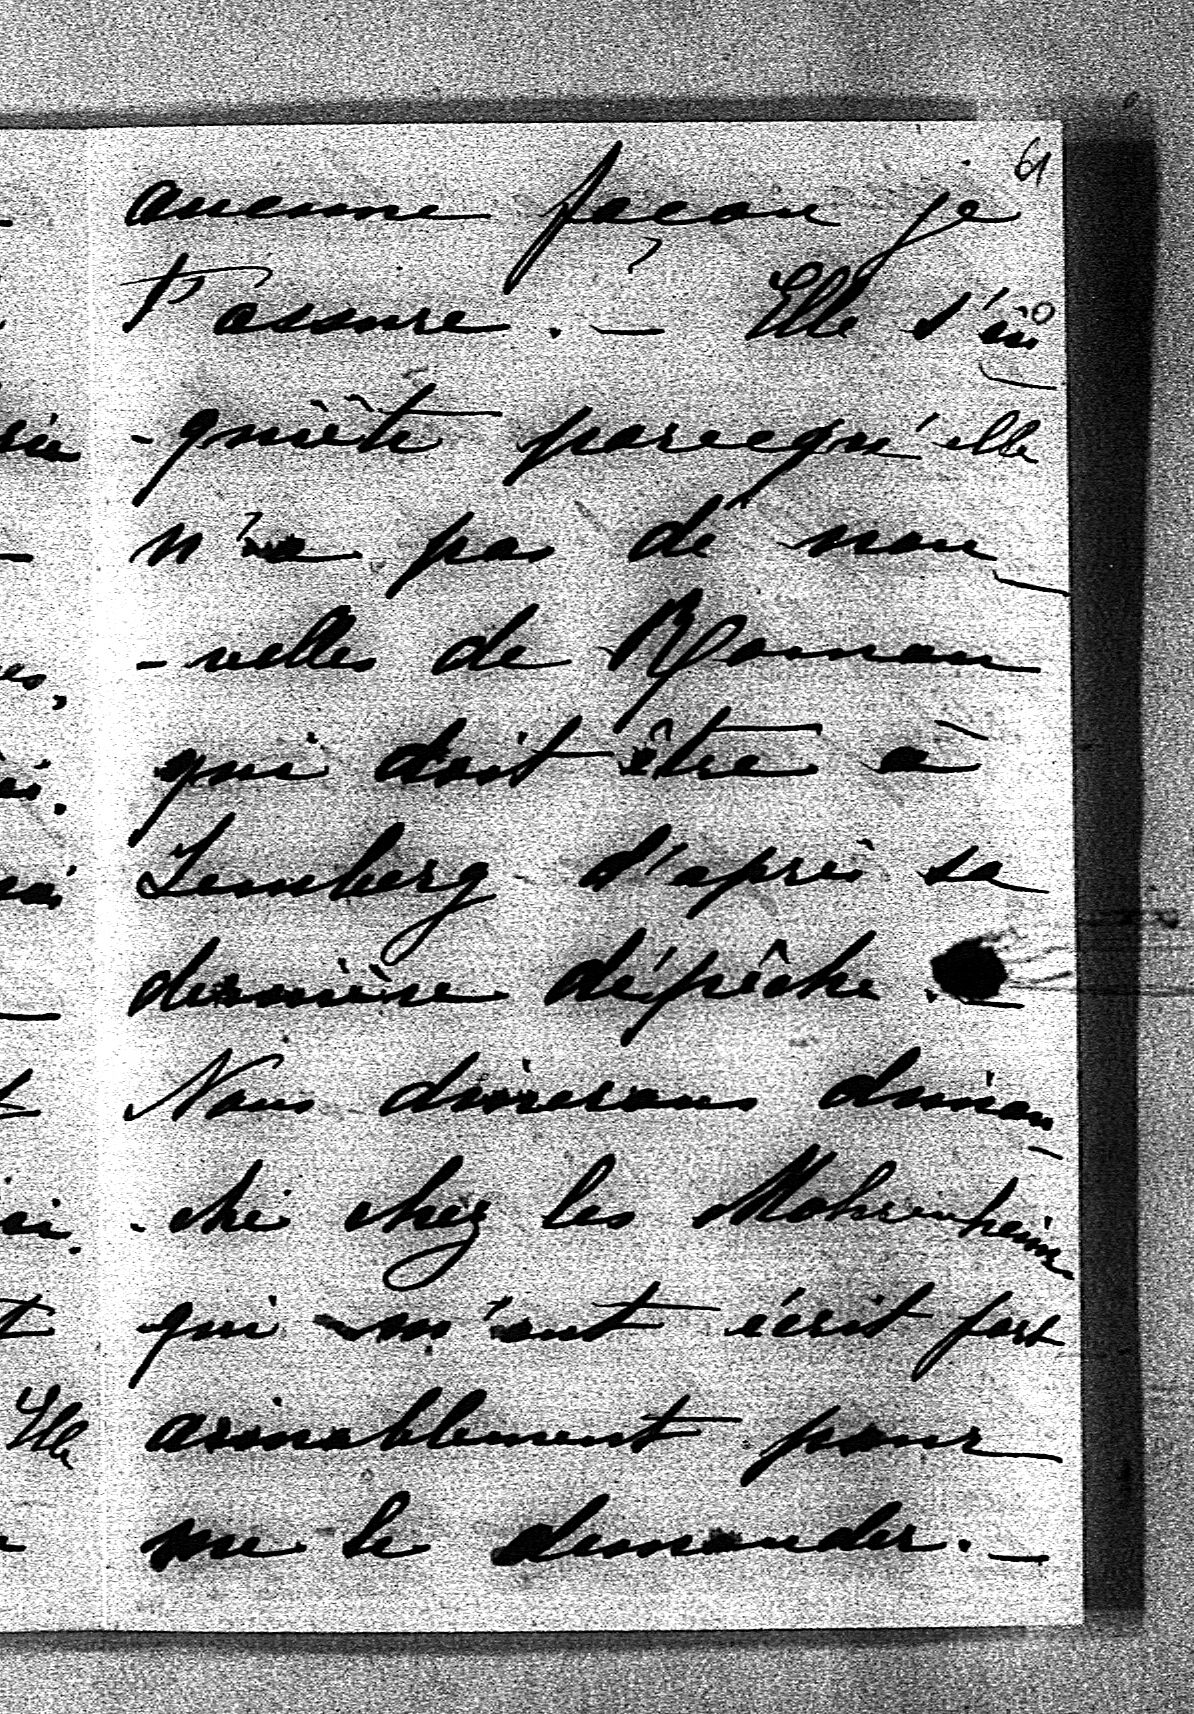 61
aucune façon je
t'assure. — Elle s'in
-quiète parcequ'elle
n'a pas de nou
-velles de Roman
qui doit être à
Lemberg d'après sa
dernière dépêche. —
Nous dinerons diman
-che chez les Mohrenheim
qui m'ont écrit fort
aimablement pour
me le demander. —